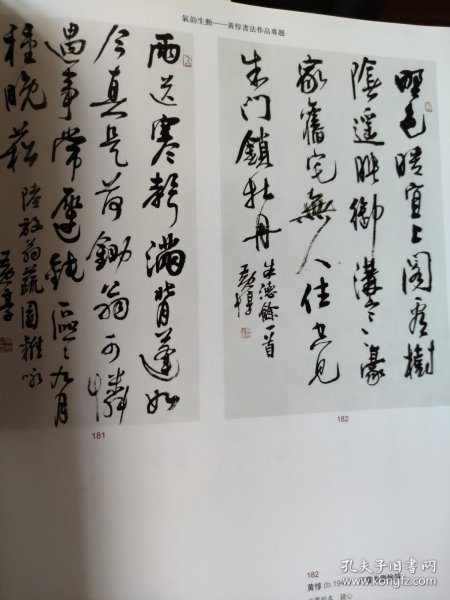 氣韵生動——黃惇書法作品專題
野色晴宜上閣看樹
陰遥映御溝寒豪
家舊宅無人住空見
朱門鎖牡丹
朱慶餘一首
黃惇
182
雨送寒聲滿背蓬如
今真是荷鋤翁可憐
遇事常遲鈍區〻九月
種晚菘
陸放翁蔬園雜咏
黃惇
181
182
黄惇 (b.194
孔夫子旧书网